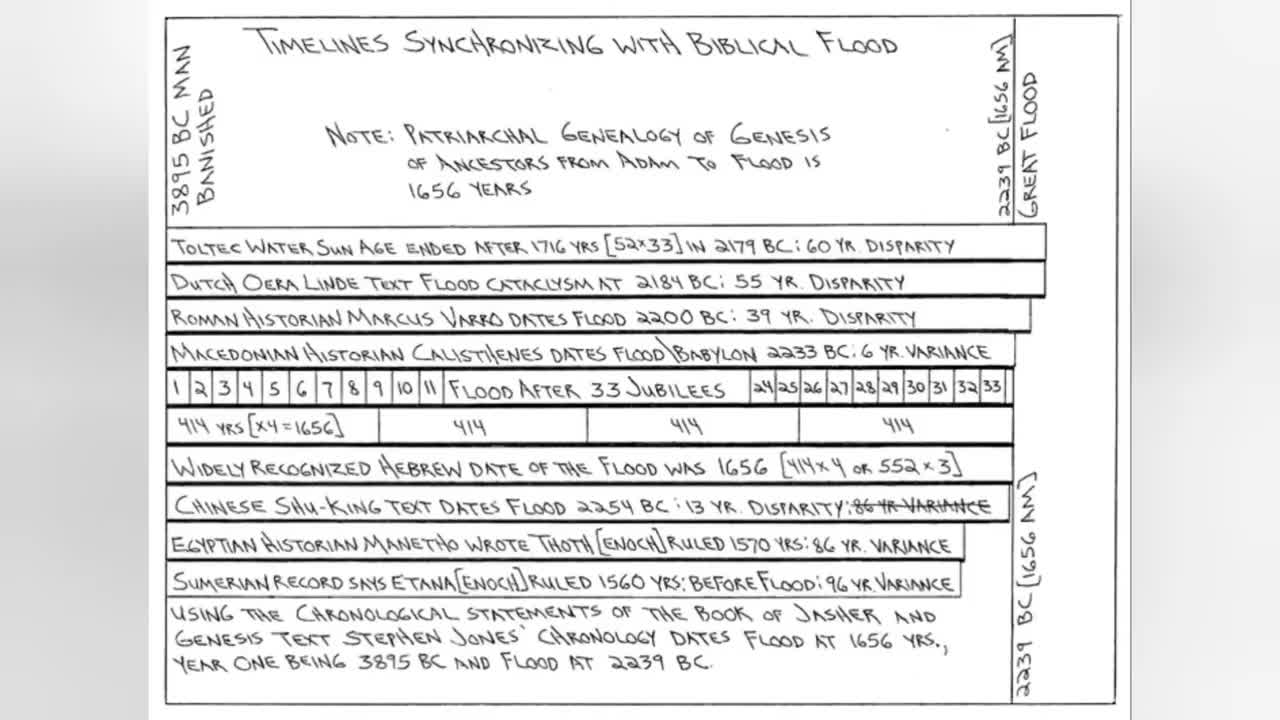 TIMELINES SYNCHRONIZING WITH BIBLICAL FLOOD
3895 BC MAN
BANISHED
NOTE: PATRIARCHAL GENEALOGY OF GENESIS
OF ANCESTORS FROM ADAM TO FLOOD IS
1656 YEARS
2239 BC [1656 AM]
GREAT FLOOD
TOLTEC WATER SUN AGE ENDED AFTER 1716 YRS [52×33] IN 2179 BC: 60 YR. DISPARITY
DUTCH OERA LINDE TEXT FLOOD CATACLYSM AT 2184 BC: 55 YR. DISPARITY
ROMAN HISTORIAN MARCUS VARRO DATES FLOOD 2200 BC: 39 YR. DISPARITY
MACEDONIAN HISTORIAN CALISTHENES DATES FLOOD\BABYLON 2233 BC: 6 YR. VARIANCE
1 2 3 4 5 6 7 8 9 10 11 FLOOD AFTER 33 JUBILEES 24 25 26 27 28 29 30 31 32 33
414 YRS [×4=1656] 414 414 414
WIDELY RECOGNIZED HEBREW DATE OF THE FLOOD WAS 1656 [414×4 OR 552×3]
CHINESE SHU-KING TEXT DATES FLOOD 2254 BC: 13 YR. DISPARITY: 86 YR VARIANCE
EGYPTIAN HISTORIAN MANETHO WROTE THOTH [ENOCH] RULED 1570 YRS: 86 YR. VARIANCE
SUMERIAN RECORD SAYS ETANA [ENOCH] RULED 1560 YRS: BEFORE FLOOD: 96 YR. VARIANCE
USING THE CHRONOLOGICAL STATEMENTS OF THE BOOK OF JASHER AND
GENESIS TEXT STEPHEN JONES' CHRONOLOGY DATES FLOOD AT 1656 YRS.,
YEAR ONE BEING 3895 BC AND FLOOD AT 2239 BC.
2239 BC [1656 AM]